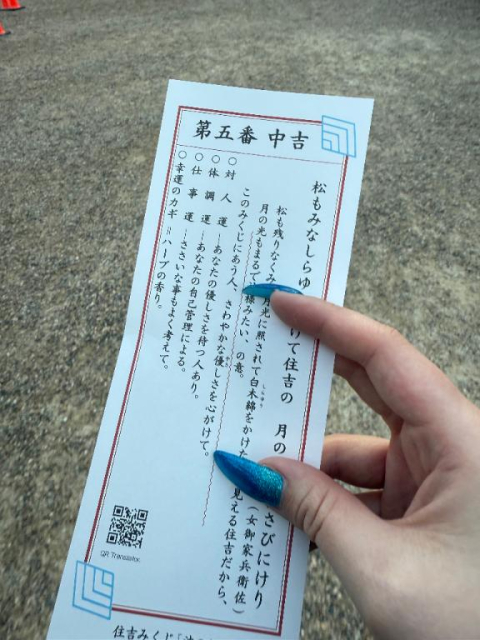 第五番 中吉
松もみなしらゆ
けて住吉の 月の
さびにけり
(女御家兵衛佐)
松も残りなくみ
月光に照されて白木綿をかけた
しらゆう
見える住吉だから、
月の光もまるで
様みたい、の意。
このみくじにあう人、さわやかな優しさを心がけて。
○対人運…あなたの優しさを待つ人あり。
○体調運…あなたの自己管理による。
○仕事運…ささいな事もよく考えて。
○幸運のカギ＝ハーブの香り。
QR Translator
住吉みくじ